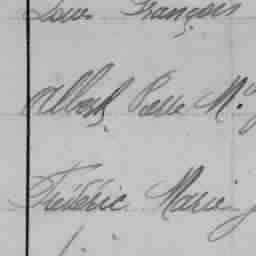 Louis François
Albert Pierre M.
Frédéric Marie